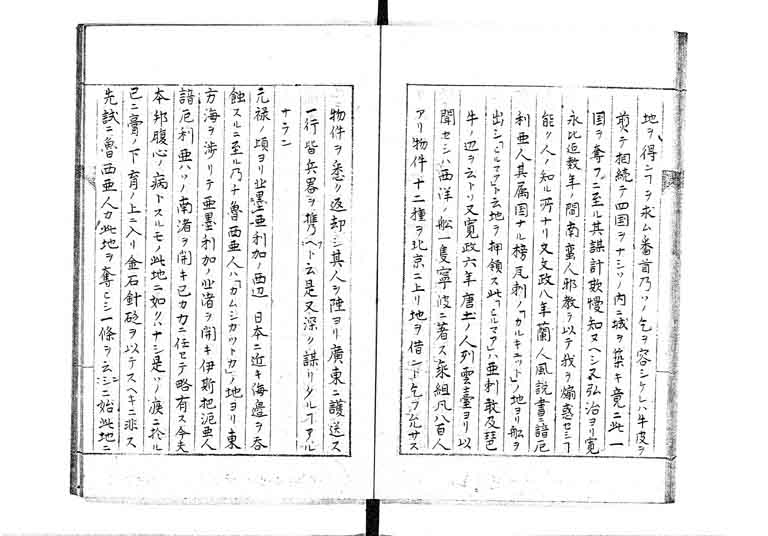 地ヲ得ンヿヲ求ム番首乃ソノ乞ヲ容シケレハ牛皮ヲ
剪テ相続テ四囲ヲナシソノ内ニ城ヲ築キ竟ニ此一
国ヲ奪フニ至ル其謀計欺慢知ヌヘシ又弘治ヨリ寛
永比迄数年ノ間南蛮人邪教ヲ以テ我ヲ煽惑セシヿ
能ク人ノ知ル所ナリ又文政八年蘭人風説書ニ諳厄
利亜人其属国ナル榜瓦剌ノ「カルキュット」ノ地ヨリ船ヲ
出シ「ヒルマア」ト云地ヲ押領ス此「ヒルマア」ハ亜剌敢及琶
牛ノ辺ヲ云トソ又寛政六年唐土ノ人列雲臺ヨリ以
聞セシハ西洋ノ船一隻寧波ニ著ス乗組凡八百人
アリ物件十二種ヲ北京ニ上リ地ヲ借ンヿヲ乞フ允サス
物件ヲ悉ク返却シ其人ヲ陸ヨリ廣東ニ護送ス
一行皆兵器ヲ携ヘト云是又深ク謀リクルヿアル
ナラン
元禄ノ頃ヨリ北墨亜利加ノ西辺日本ニ近キ海邊ヲ呑
蝕スルニ至ル乃ナ魯西亜人ハ「カムシカツトカ」ノ地ヨリ東
方海ヲ渉リテ亜墨利加ノ北渚ヲ開キ伊斯把泥亜人
諳厄利亜ハソノ南渚ヲ開キ已カ力ニ任セテ略有ス今夫
本邦腹心ノ病トスルモノ此地ニ如クハナシ是ソノ疾ニ於ル
已ニ膏ノ下育ノ上ニ入リ金石針砭ヲ以テスヘキニ非ス
先試ニ魯西亜人カ此地ヲ奪ヒシ一條ヲ云ンニ始此地ニ